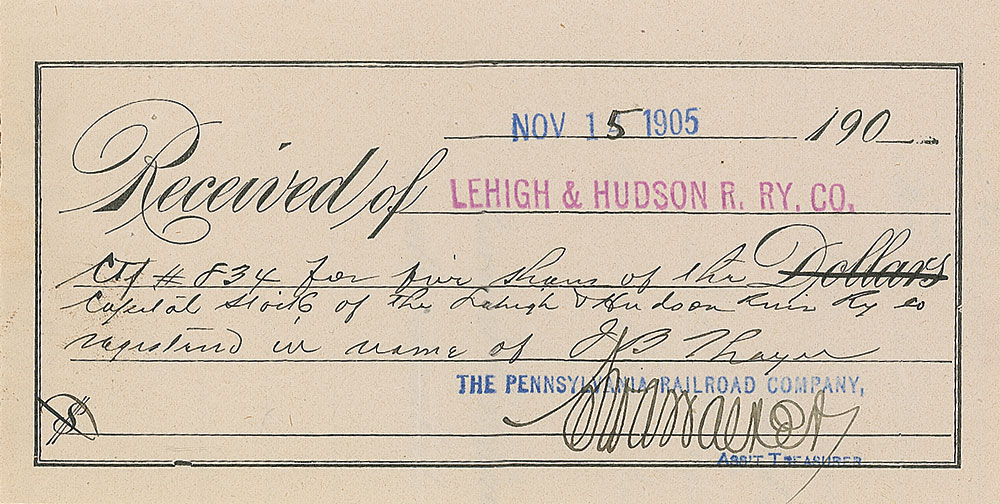 NOV 15 1905 190
Received of LEHIGH & HUDSON R. RY. CO.
Ctf # 834 for five shares of the Dollars
Capital Stock of the Lehigh & Hudson River Ry Co
registered in name of J B Thayer
THE PENNSYLVANIA RAILROAD COMPANY,
$
ASS'T TREASURER